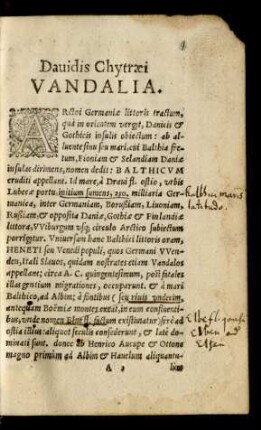 Dauidis Chytræi
VANDALIA.
ARctoi Germaniæ littoris tractum,
quà in orientem vergit, Danicis &
Gothicis insulis obiectum: ab al-
luente sinu seu mari, cui Balthia fre-
tum, Fioniam & Selandiam Daniæ
insulas dirimens, nomen dedit: BALTHICVM
eruditi appellant. Id mare, à Draui fl. ostio, vrbis
Lubecæ portu initium sumens, 250. milliaria Germa-
nica, inter Germaniam, Borußiam, Liuoniam,
Rußiam; & opposita Daniæ, Gothiæ & Finlandiæ
littora, VViburgum vsq; circulo Arctico subiectum
porrigitur. Vniuersam hanc Balthici littoris oram,
HENETI seu Venedi populi, quos Germani VVen-
den, Itali Slauos, quidam nostrates etiam Vandalos
appellant; circa A. C. quingentesimum, post fatales
illas gentium migrationes, occuparunt. & à mari
Balthico, ad Albim; à fontibus (seu riuis vndecim,
antequam Boëmiæ montes exeat, in eum confluenti-
bus, vnde nomen Elbe fl. factum existimatur) ferè ad
ostia illius: aliquot seculis consederunt, & latè domi-
nati sunt. donec ab Henrico Aucupe & Ottone
magno primùm ad Albim & Hauelum aliquantu-
A 2 lùm
Balthici maris
latitudo
Elbe fl.
Elben ad